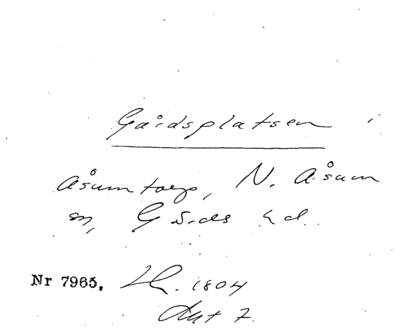 Gårdsplatsen i
Åsumtorp, N. Åsum
sn, Gärds hd.
Nr 7965. 1804
Akt 7.